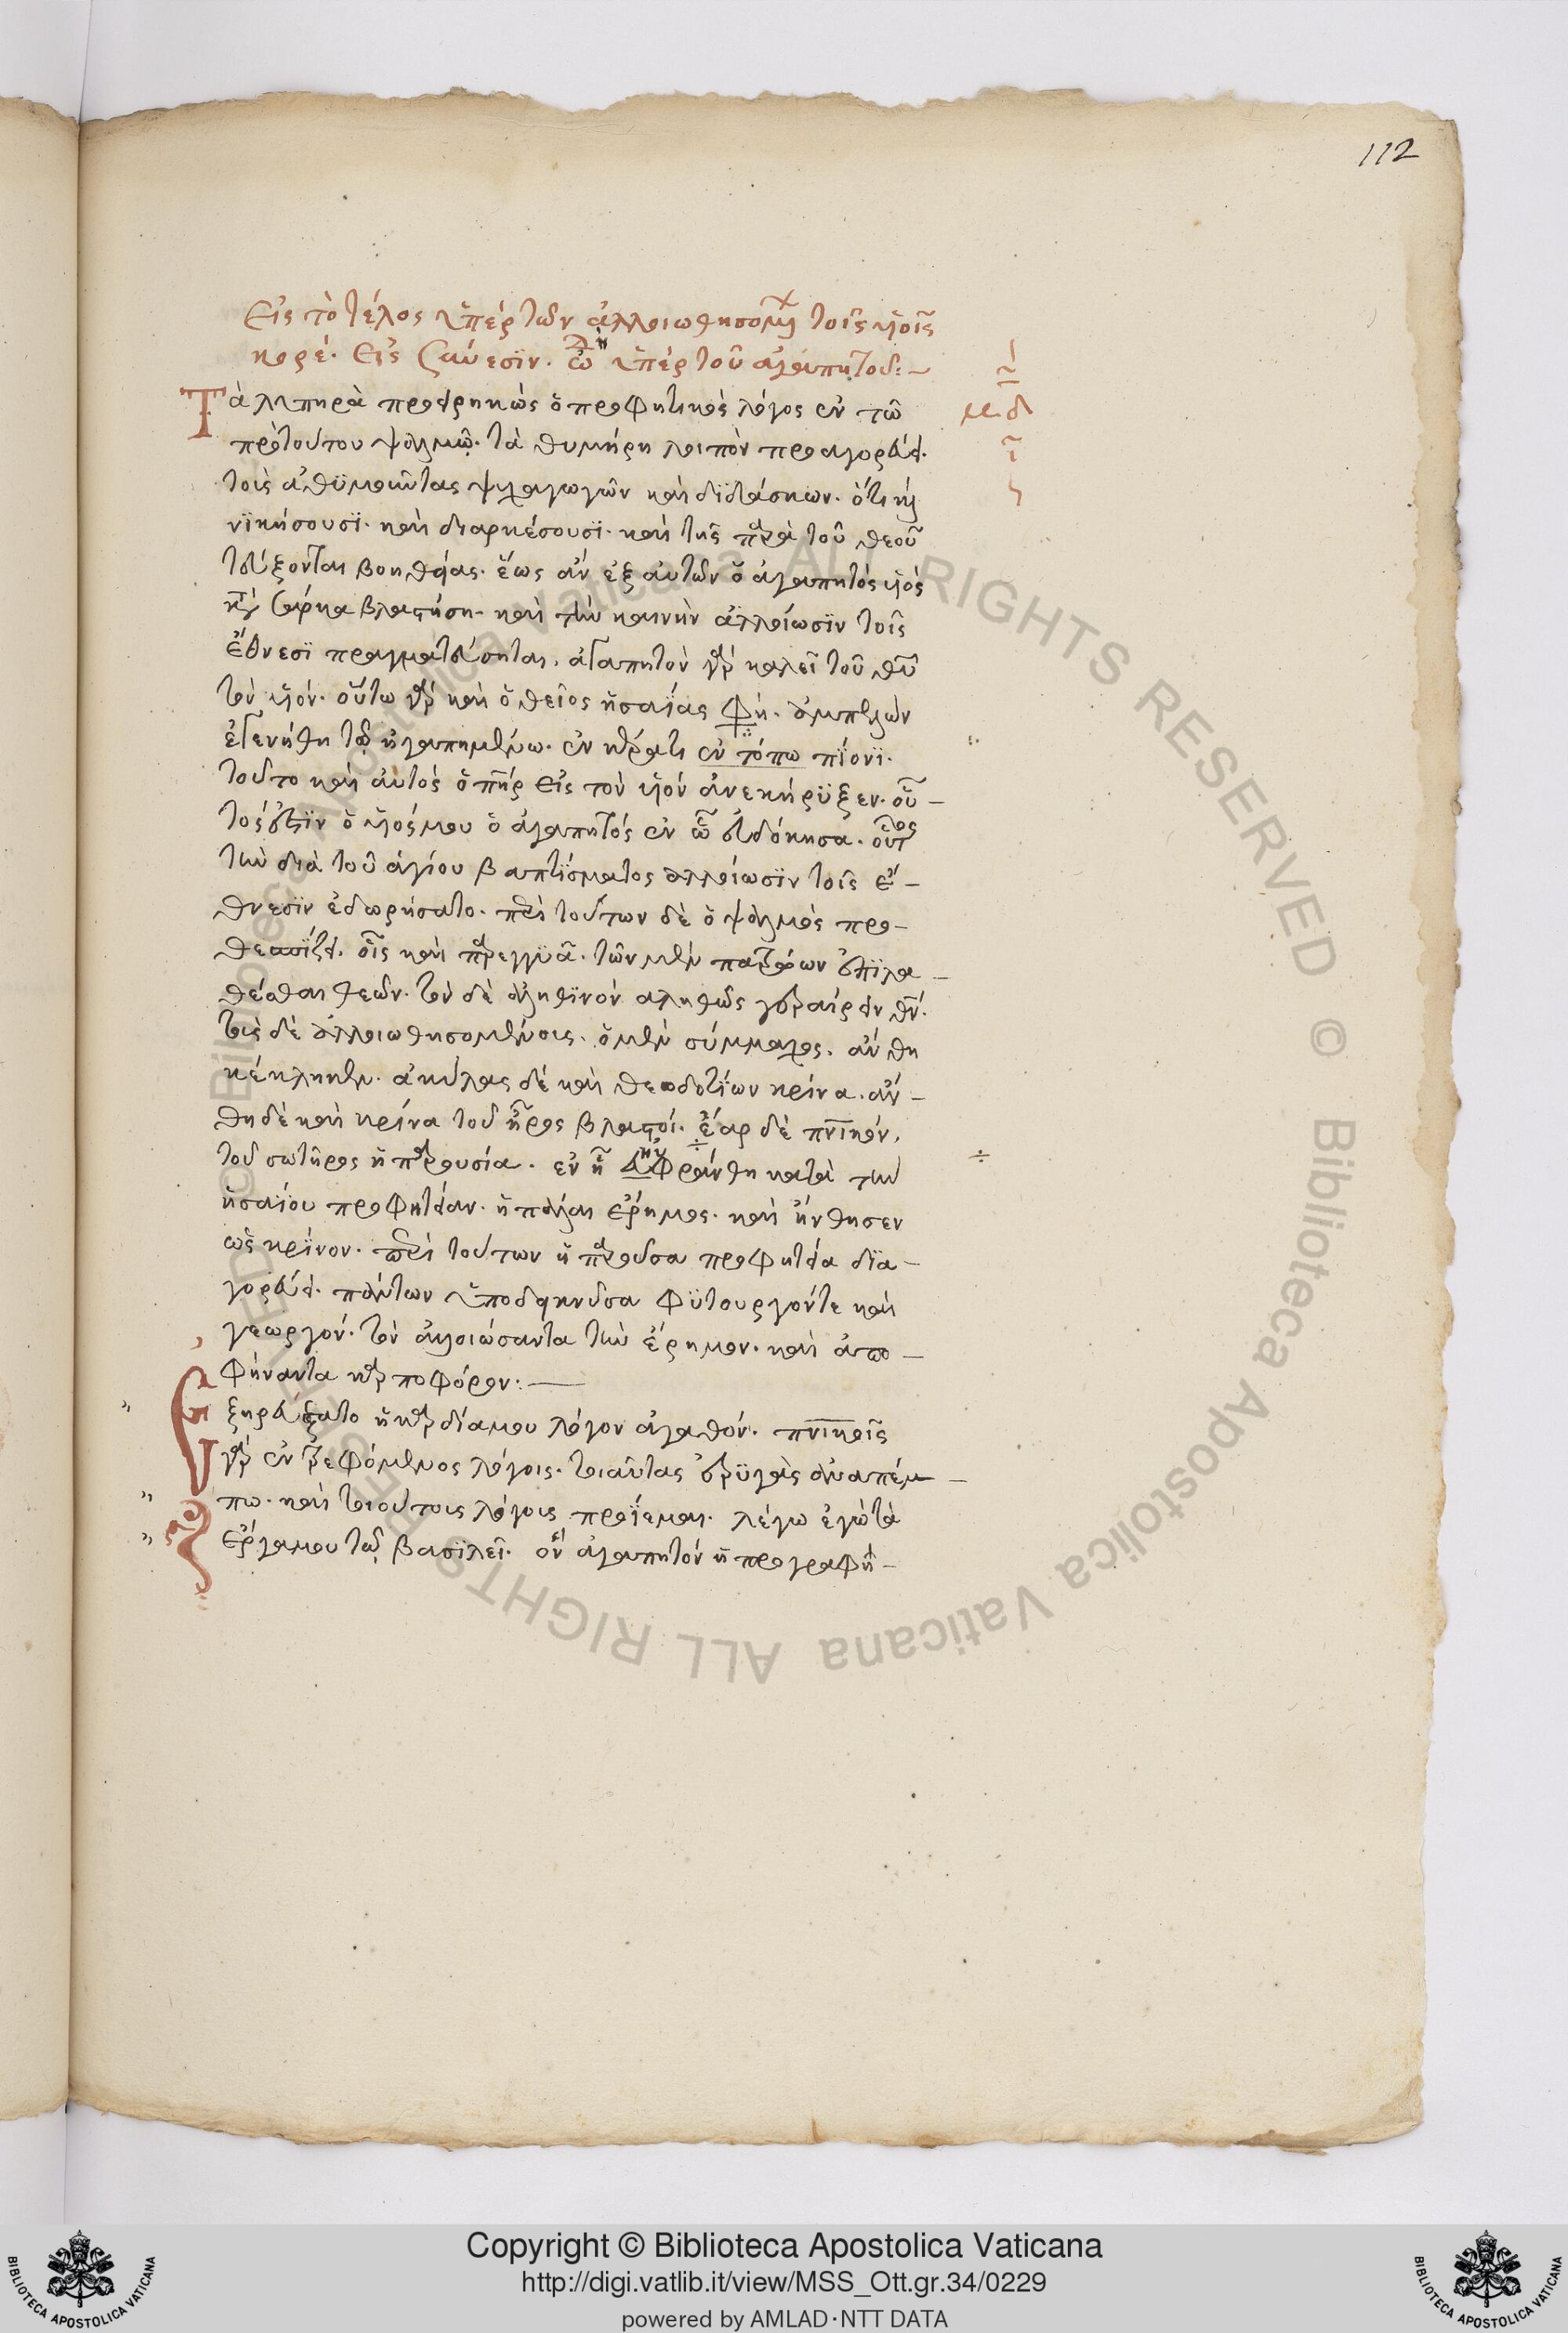 112
Εἰς τὸ τέλος ὑπὲρ τῶν ἀλλοιωθησομ τοῖς υἱοῖς
κορέ. Εἰς σύνεσϊν. ᾠδὴ ὑπὲρ τοῦ ἀγαπητοῦ:~
μδ
Τὰ λυπηρὰ προειρηκὼς ὁ προφητικὸς λόγος ἐν τῶ
πρὸ τούτου ψαλμῶ. τὰ θυμήρη λοιπὸν προαγορεύει.
τοὺς ἀθϋμοῦντας ψυχαγωγῶν καὶ διδάσκων. ὅτι καὶ
νϊκήσουσϊ. καὶ διαρκέσουσϊ. καὶ τῆς παρὰ τοῦ θεοῦ
τεύξονται βοηθείας. ἕως ἂν ἐξ αὐτῶν ὁ ἀγαπητὸς υἱὸς
κατὰ σάρκα βλαστήση. καὶ τὴν καινὴν ἀλλοίωσϊν τοῖς
ἔθνεσϊ πραγματεύσηται. ἀγαπητὸν γὰρ καλεῖ τοῦ θῦ
τὸν υἱόν. οὕτω γὰρ καὶ ὁ θεῖος ἡσαΐας φη. ἀμπελὼν
ἐγενήθη τῷ ἠγαπημένω. ἐν κέρατι ἐν τόπω πΐονϊ.
τοῦτο καὶ αὐτὸς ὁ πηρ εἰς τὸν υἱὸν ἀνεκήρϋξεν. οὗ–
τός ἐστϊν ὁ υἱός μου ὁ ἀγαπητός ἐν ὧ εὐδόκησα. οὗτος
τὴν διὰ τοῦ ἁγίου βαπτΐσματος ἀλλοίωσϊν τοῖς ἔ–
θνεσϊν ἐδωρήσατο. περὶ τούτων δὲ ὁ ψαλμὸς προ–
θεσπΐζει. οἷς καὶ παρεγγϋᾶ. τῶν μὲν πατρώων ἐπϊλα–
θέσθαι θεῶν. τὸν δὲ ἀληθϊνὸν ἀληθῶς γεραίρειν θν.
τοῖς δὲ ἀλλοιωθησομένοις. ὁ μὲν σύμμαχος. ἄνθη
κέκληκεν. ἀκύλας δὲ καὶ θεοδοτΐων κρίνα. ἄν–
θη δὲ καὶ κρίνα τοῦ ἦρος βλαστοί. ἔαρ δὲ πνικόν.
τοῦ σωτῆρος ἡ παρουσία. ἐν ἧ ηὐφράνθη κατὰ τὴν
ἡσαΐου προφητείαν. ἡ πάλαι ἔρημος. καὶ ἤνθησεν
ὡς κρΐνον. περὶ τούτων ἡ παροῦσα προφητεία δϊα–
γορεύει. πάντων ὑποδεικνῦσα φϋτουργόν τε καὶ
γεωργόν. τὸν ἀλσιώσαντα τὴν ἔρημον. καὶ ἀπο–
φήναντα καρποφόρον:—
Ἐξηρεύξατο ἡ καρδία μου λόγον ἀγαθόν. πνικοῖς
γὰρ ἐντρεφόμενος λόγοις. τοιαύτας ἐρϋγὰς ἀναπέμ–
πω. καὶ τοιούτοις λόγοις προΐεμαι. λέγω ἐγὼ τὰ
ἔργα μου τῷ βασϊλεῖ. ὃν ἀγαπητὸν ἡ προγραφὴ–
© Biblioteca Apostolica Vaticana ALL RIGHTS RESERVED © Biblioteca Apostolica Vaticana ALL RIGHTS RESERVED
BIBLIOTECA APOSTOLICA VATICANA
Copyright © Biblioteca Apostolica Vaticana
http://digi.vatlib.it/view/MSS_Ott.gr.34/0229
powered by AMLAD·NTT DATA
BIBLIOTECA APOSTOLICA VATICANA